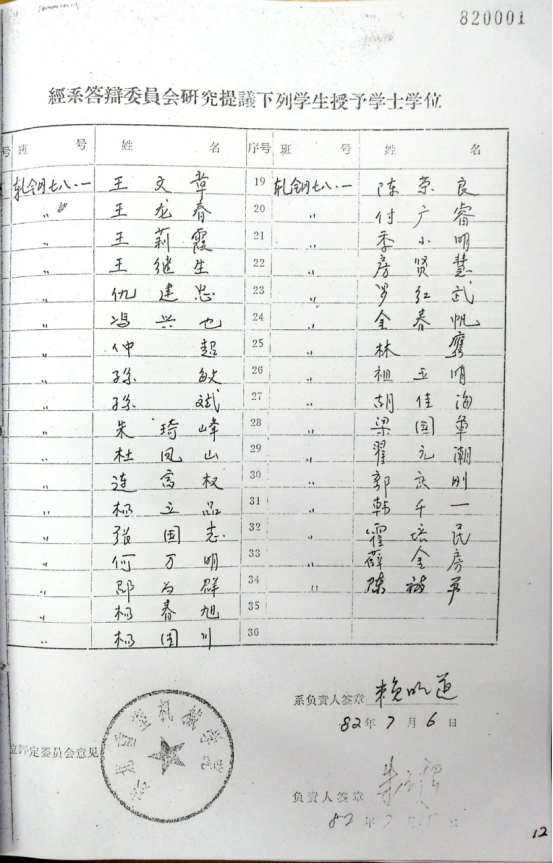 820001
經系答辯委員会研究提議下列学生授予学士学位
号 班 号 姓 名 序号 班 号 姓 名
轧鋼七八·一 王文章 19 轧鋼七八·一 陈荣良
〃 王龙春 20 〃 付广睿
〃 王莉霞 21 〃 季小明
〃 王继生 22 〃 房贤慧
〃 仇建忠 23 〃 罗红武
〃 冯兴也 24 〃 金春帆
〃 仲超 25 〃 林
〃 孙敏 26 〃 祖玉明
〃 孙斌 27 〃 胡佳海
〃 朱琦峰 28 〃 梁国革
〃 杜凤山 29 〃 翟元潮
〃 连富权 30 〃 郭庆刚
〃 杨立品 31 〃 韩千一
〃 张国志 32 〃 霍培民
〃 何万明 33 〃 薛金房
〃 邵为群 34 〃 陈
〃 杨春旭 35
〃 杨国川 36
系负责人签章 赖明道
82年7月6日
位評定委员会意见
负责人签章
82年7月
12